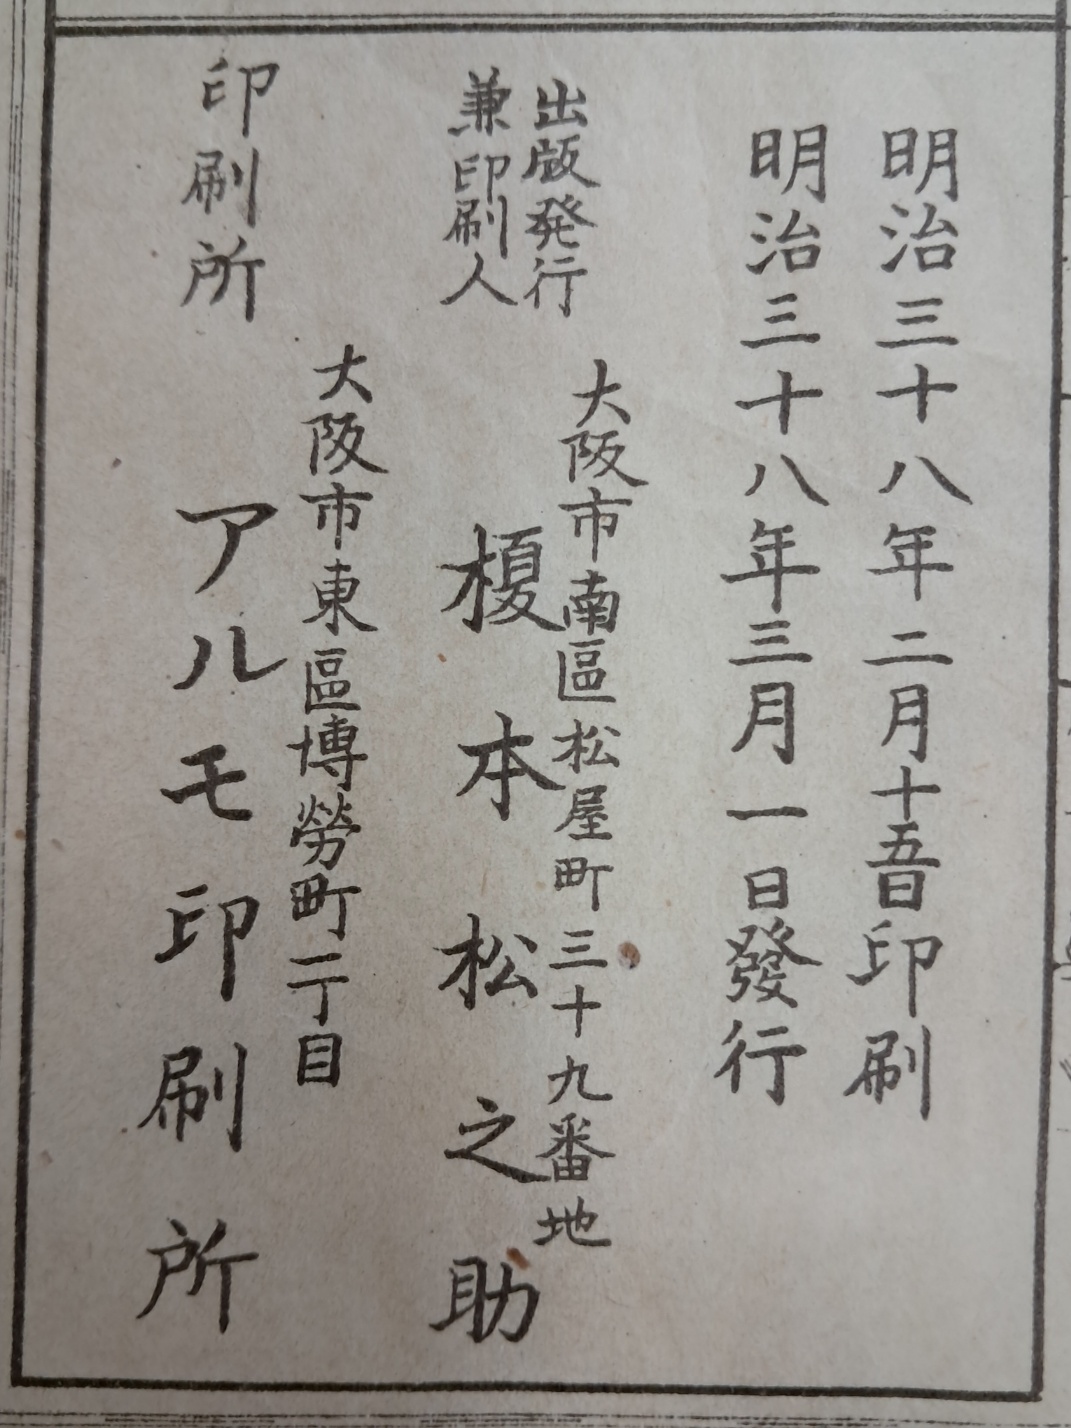 明治三十八年二月十五日印刷
明治三十八年三月一日發行
出版発行
兼印刷人
大阪市南區松屋町三十九番地
榎本松之助
印刷所
大阪市東區博勞町二丁目
アルモ印刷所